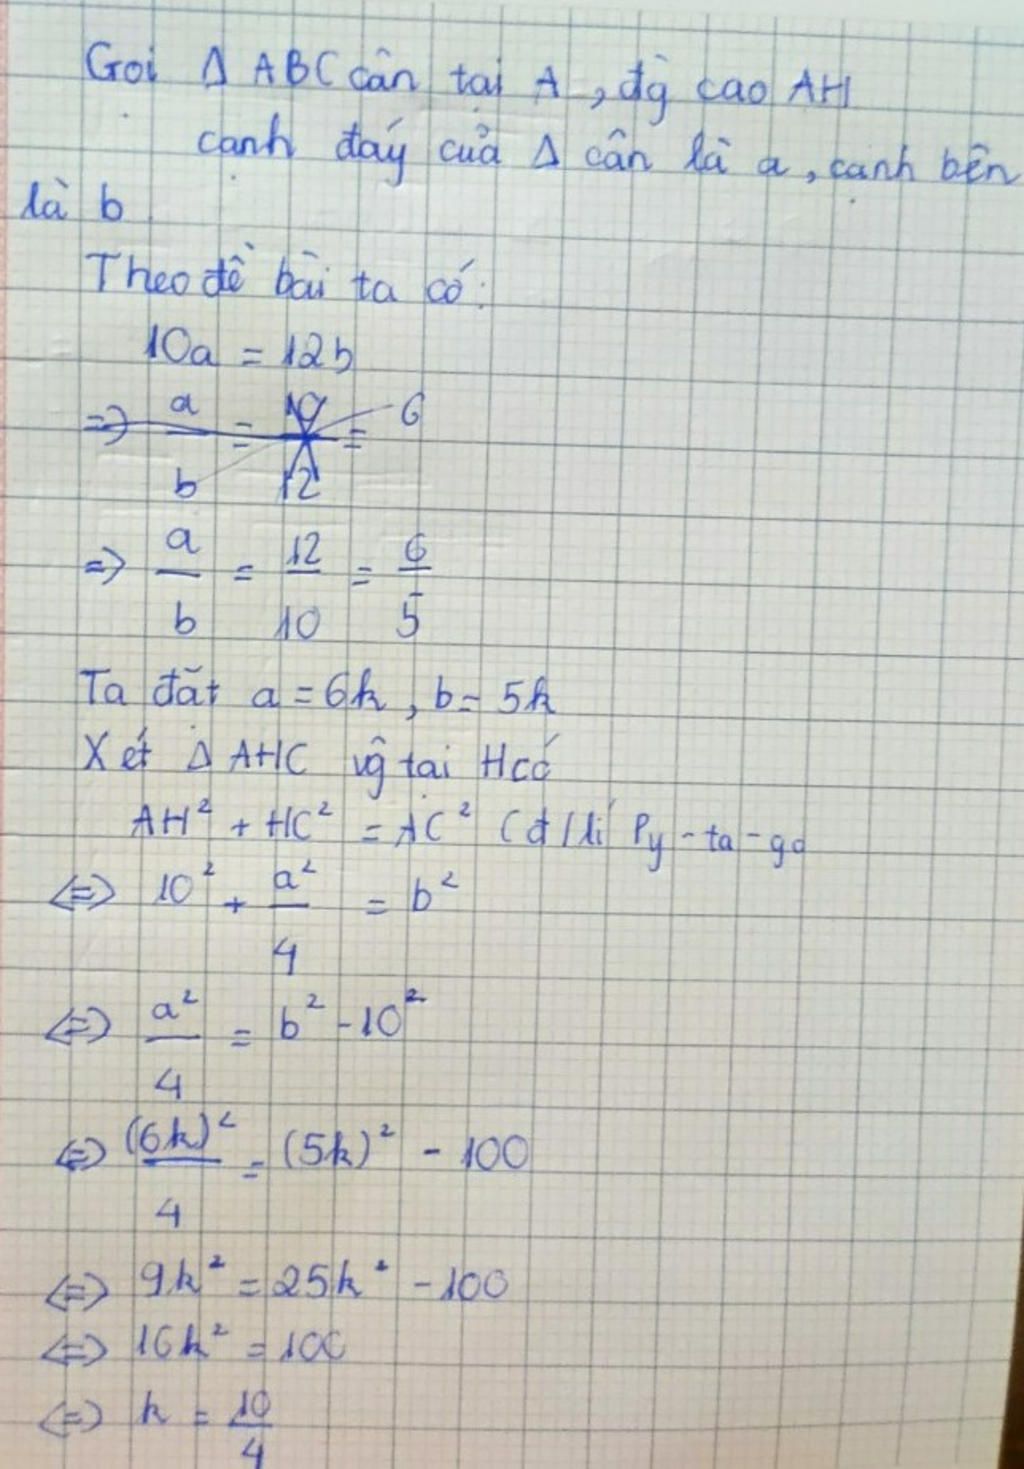 Gọi Δ ABC cân tại A, đg cao AH
cạnh đáy của Δ cân là a, cạnh bên
là b
Theo đề bài ta có:
10a = 12b
=> a/b = 10/12 = 6
=> a/b = 12/10 = 6/5
Ta đặt a = 6k, b = 5k
Xét Δ AHC vg tại H có
AH² + HC² = AC² (đ/lí Py-ta-go
<=> 10² + a²/4 = b²
<=> a²/4 = b² - 10²
<=> (6k)²/4 = (5k)² - 100
<=> 9k² = 25k² - 100
<=> 16k² = 100
<=> k = 10/4